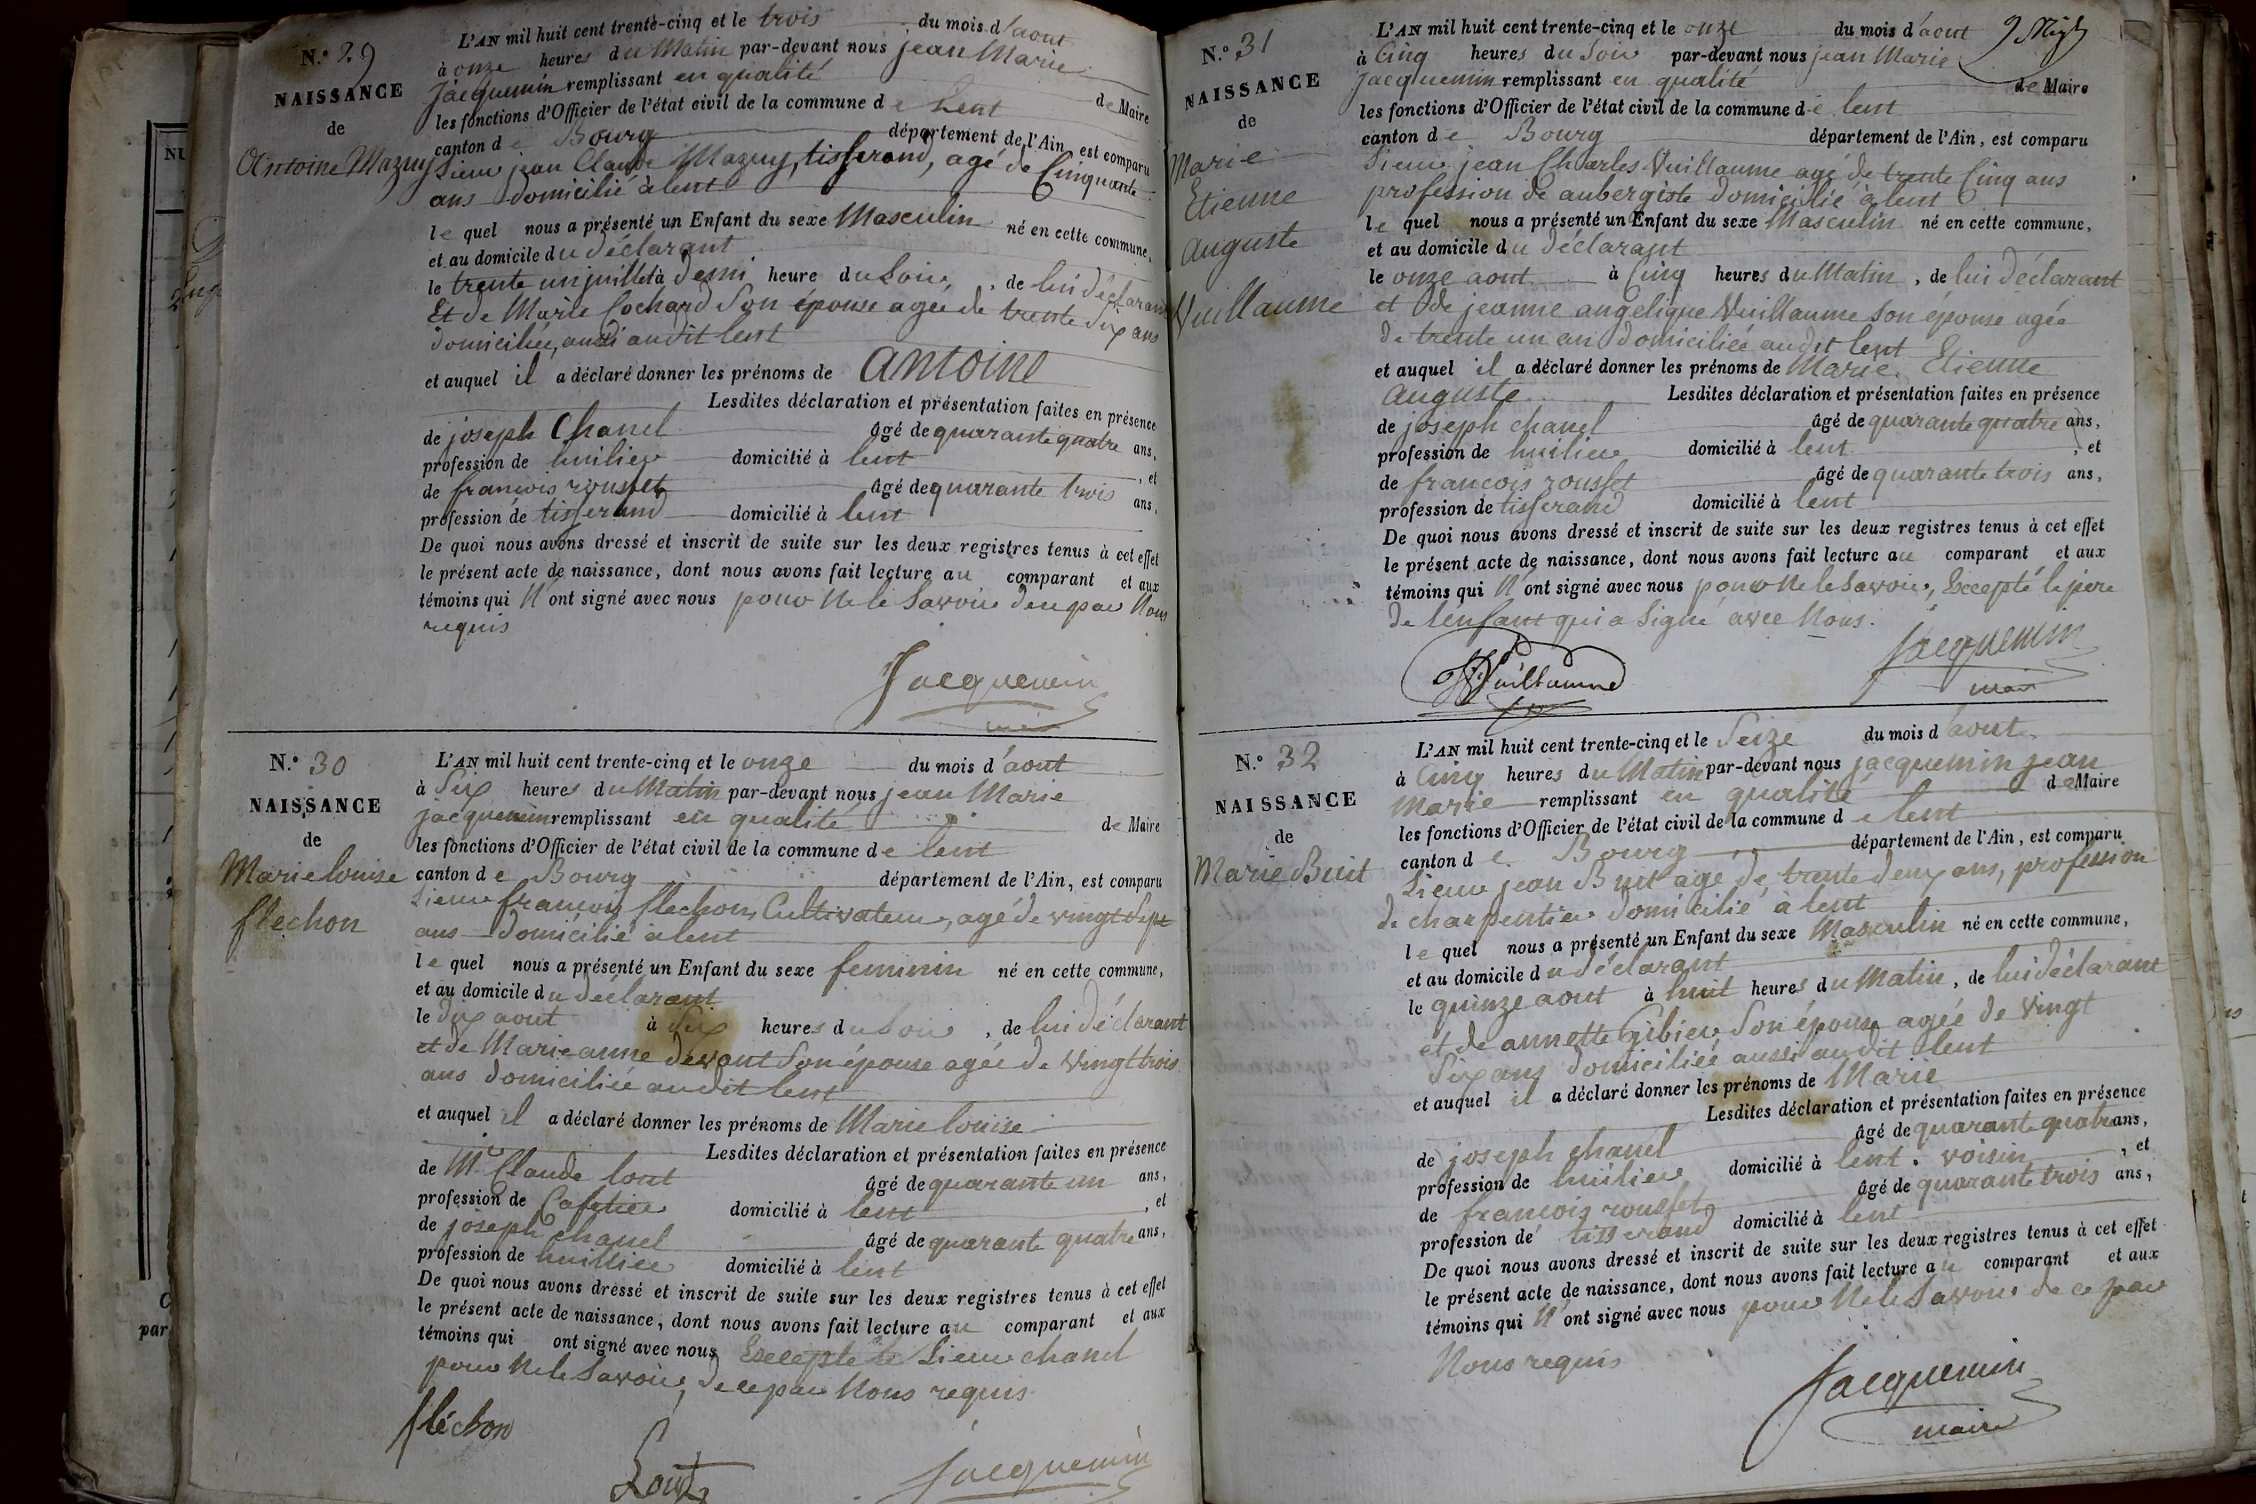 N.° 29
NAISSANCE
de
Antoine Mazuy
L'AN mil huit cent trente-cinq et le trois du mois d'aout
à onze heures du Matin par-devant nous jean Marie
Jacquemin remplissant en qualité de Maire
les fonctions d'Officier de l'état civil de la commune de Lent
canton de Bourg département de l'Ain, est comparu
Sieur jean Claude Mazuy, tisserand, agé de Cinquante
ans domicilié à lent
lequel nous a présenté un Enfant du sexe Masculin né en cette commune,
et au domicile du déclarant
le trente un juillet à demi heure du Soir, de lui déclarant
Et de Marie Cochard Son épouse agée de trente Six ans
domiciliée, audit lent
et auquel il a déclaré donner les prénoms de Antoine
Lesdites déclaration et présentation faites en présence
de joseph Chanel âgé de quarante quatre ans,
profession de huilier domicilié à lent, et
de francois rousset âgé de quarante trois ans,
profession de tisserand domicilié à lent
De quoi nous avons dressé et inscrit de suite sur les deux registres tenus à cet effet
le présent acte de naissance, dont nous avons fait lecture au comparant et aux
témoins qui N'ont signé avec nous pour Ne le Savoir de ce par Nous
requis
Jacquemin
N.° 30
NAISSANCE
de
Marie louise
flechon
L'AN mil huit cent trente-cinq et le onze du mois d'aout
à Six heures du Matin par-devant nous jean Marie
jacquemin remplissant en qualité de Maire
les fonctions d'Officier de l'état civil de la commune de lent
canton de Bourg département de l'Ain, est comparu
Sieur francois flechon, Cultivateur, agé de vingt Sept
ans domicilié à lent
lequel nous a présenté un Enfant du sexe feminin né en cette commune,
et au domicile du declarant
le dix aout à Six heures du Soir, de lui déclarant
et de Marie anne devant Son épouse agée de vingt trois
ans domiciliée audit lent
et auquel il a déclaré donner les prénoms de Marie louise
Lesdites déclaration et présentation faites en présence
de Mr Claude lout âgé de quarante un ans,
profession de Cafetier domicilié à lent, et
de joseph chanel âgé de quarante quatre ans,
profession de huillier domicilié à lent
De quoi nous avons dressé et inscrit de suite sur les deux registres tenus à cet effet
le présent acte de naissance, dont nous avons fait lecture au comparant et aux
témoins qui ont signé avec nous Excepté le Sieur chanel
pour Ne le Savoir, de ce par Nous requis
fléchon
Jacquemin
N.° 31
NAISSANCE
de
Marie
Etienne
Auguste
Vuillaume
L'AN mil huit cent trente-cinq et le onze du mois d'aout
à Cinq heures du Soir par-devant nous jean Marie
Jacquemin remplissant en qualité de Maire
les fonctions d'Officier de l'état civil de la commune de lent
canton de Bourg département de l'Ain, est comparu
Sieur jean Charles Vuillaume agé de trente Cinq ans
profession de aubergiste domicilié à lent
lequel nous a présenté un Enfant du sexe Masculin né en cette commune,
et au domicile du déclarant
le onze aout à Cinq heures du Matin, de lui déclarant
et de jeanne angelique Vuillaume Son épouse agée
de trente un an domiciliée audit lent
et auquel il a déclaré donner les prénoms de Marie Etienne
Auguste Lesdites déclaration et présentation faites en présence
de joseph chanel âgé de quarante quatre ans,
profession de huilier domicilié à lent, et
de francois rousset âgé de quarante trois ans,
profession de tisserand domicilié à lent
De quoi nous avons dressé et inscrit de suite sur les deux registres tenus à cet effet
le présent acte de naissance, dont nous avons fait lecture au comparant et aux
témoins qui N'ont signé avec nous pour Ne le Savoir, Excepté le pere
de lenfant qui a Signé avec Nous.
Vuillaume
Jacquemin
maire
N.° 32
NAISSANCE
de
Marie Buit
L'AN mil huit cent trente-cinq et le Seize du mois d'aout
à Cinq heures du Matin par-devant nous jacquemin jean
Marie remplissant en qualité de Maire
les fonctions d'Officier de l'état civil de la commune de lent
canton de Bourg département de l'Ain, est comparu
Sieur jean Buit agé de trente deux ans, profession
de charpentier domicilié à lent
lequel nous a présenté un Enfant du sexe Masculin né en cette commune,
et au domicile du déclarant
le quinze aout à huit heures du Matin, de lui déclarant
et de annette Gibier Son épouse agée de vingt
Six ans domiciliée aussi audit lent
et auquel il a déclaré donner les prénoms de Marie
Lesdites déclaration et présentation faites en présence
de joseph chanel âgé de quarante quatre ans,
profession de huilier domicilié à lent. voisin, et
de francois rousset âgé de quarante trois ans,
profession de tisserand domicilié à lent
De quoi nous avons dressé et inscrit de suite sur les deux registres tenus à cet effet
le présent acte de naissance, dont nous avons fait lecture au comparant et aux
témoins qui N'ont signé avec nous pour Ne le Savoir de ce par
Nous requis
Jacquemin
maire